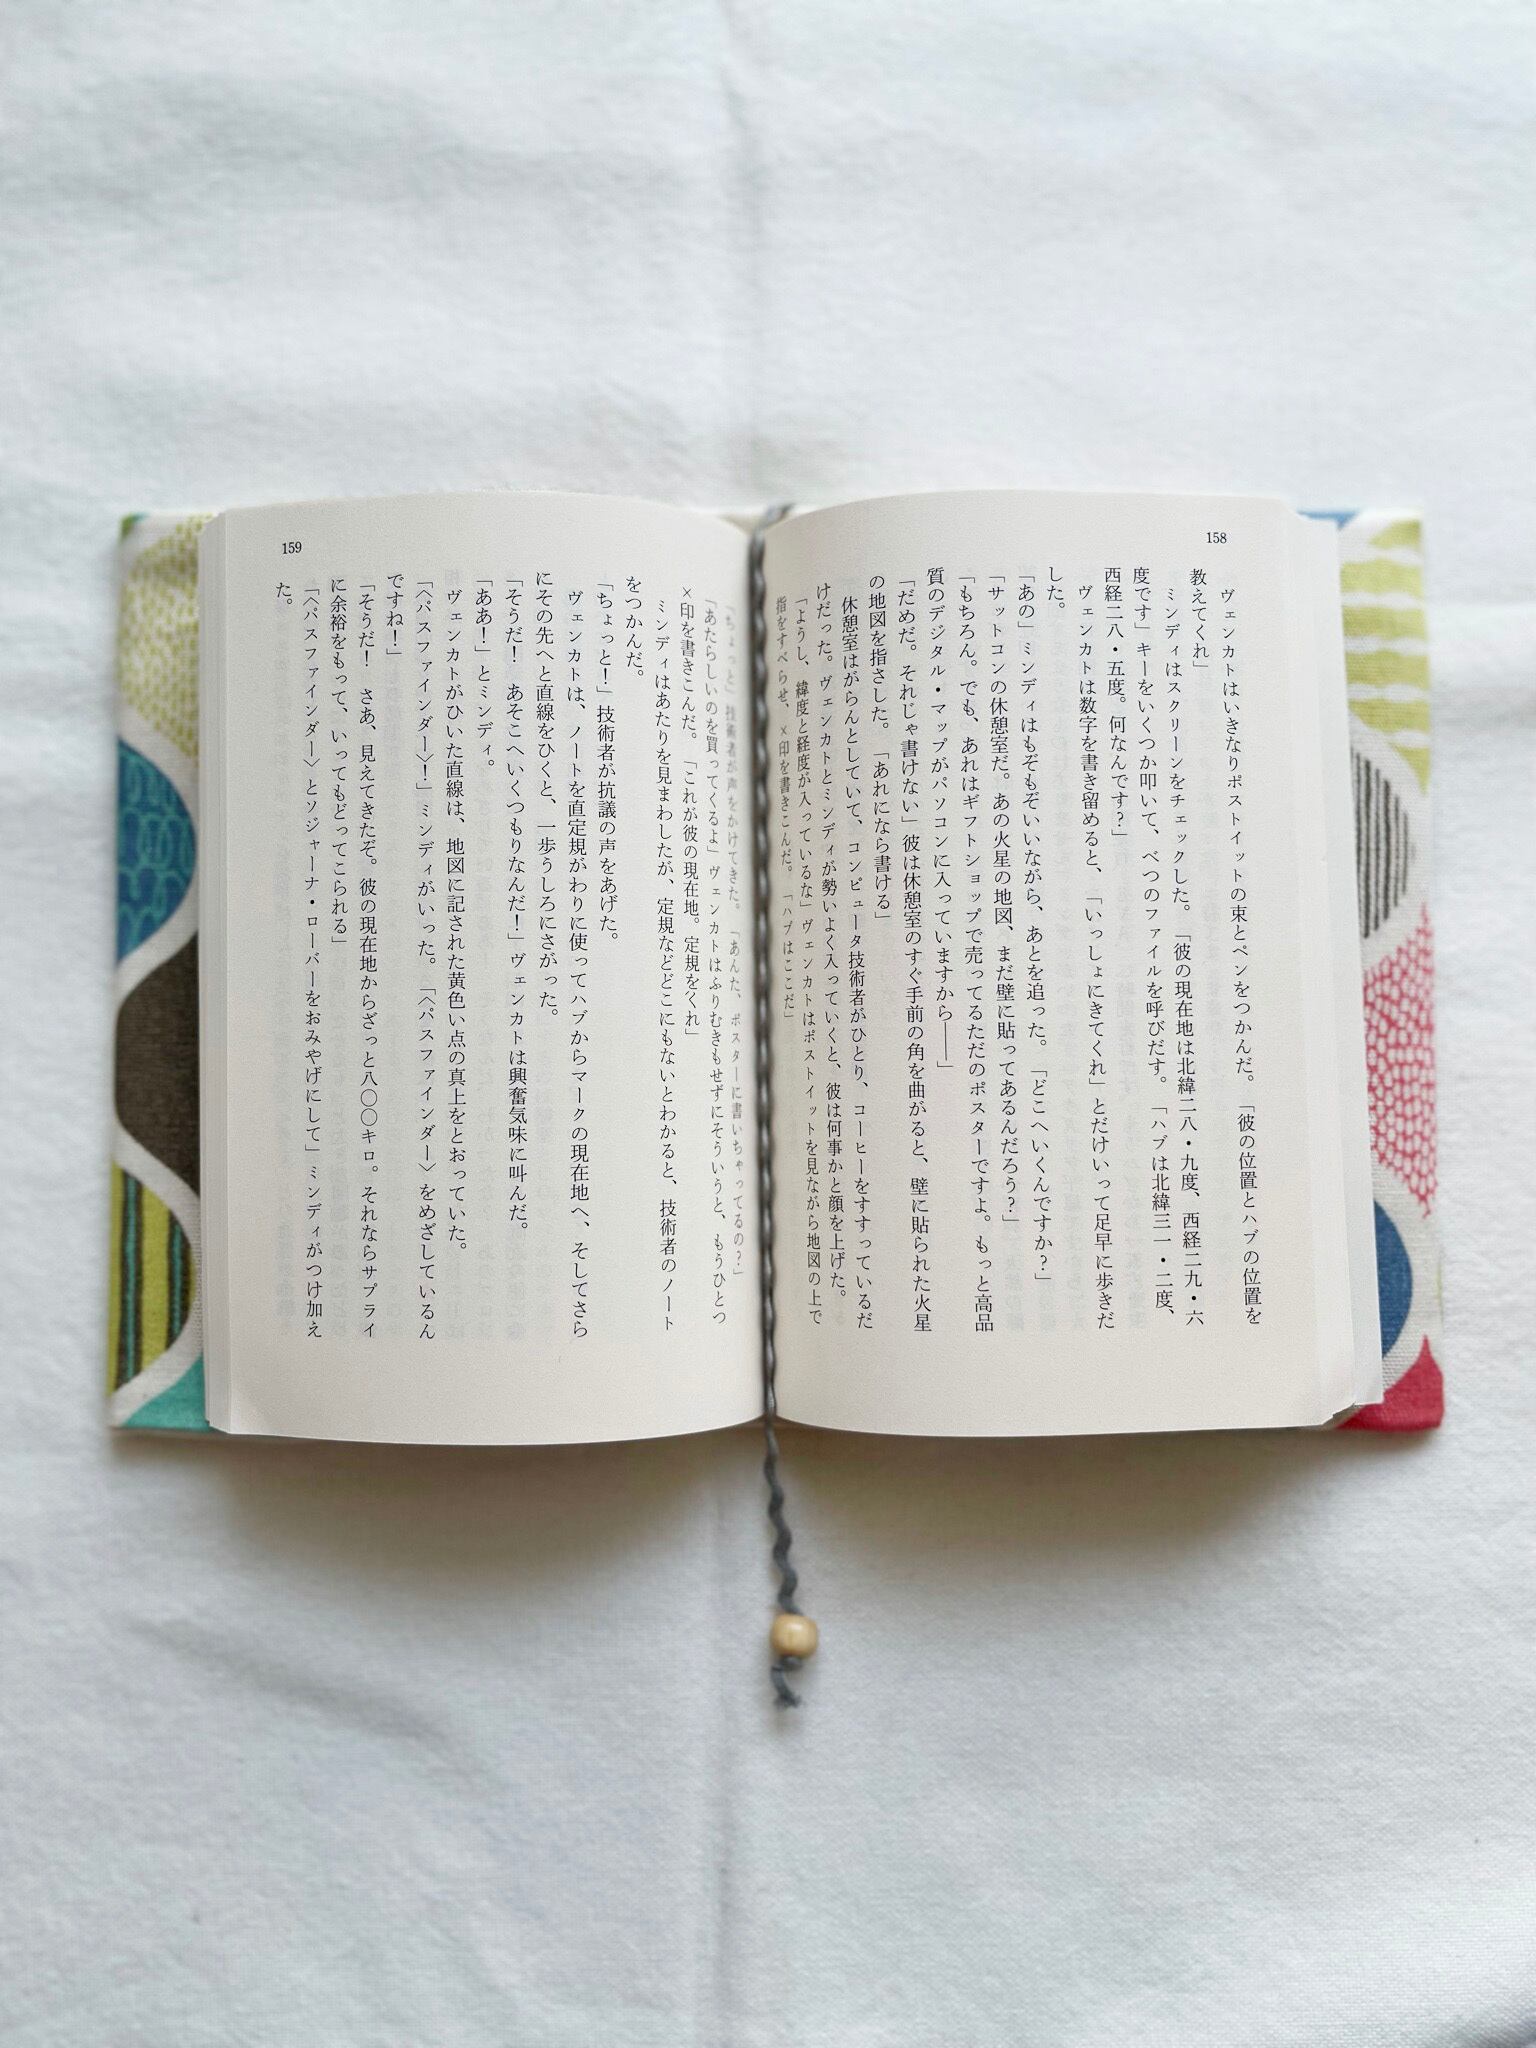 158
　ヴェンカトはいきなりポストイットの束とペンをつかんだ。「彼の位置とハブの位置を
教えてくれ」
　ミンディはスクリーンをチェックした。「彼の現在地は北緯二八・九度、西経二九・六
度です」キーをいくつか叩いて、べつのファイルを呼びだす。「ハブは北緯三一・二度、
西経二八・五度。何なんです？」
　ヴェンカトは数字を書き留めると、「いっしょにきてくれ」とだけいって足早に歩きだ
した。
「あの」ミンディはもぞもぞいいながら、あとを追った。「どこへいくんですか？」
「サットコンの休憩室だ。あの火星の地図、まだ壁に貼ってあるんだろう？」
「もちろん。でも、あれはギフトショップで売ってるただのポスターですよ。もっと高品
質のデジタル・マップがパソコンに入っていますから——」
「だめだ。それじゃ書けない」彼は休憩室のすぐ手前の角を曲がると、壁に貼られた火星
の地図を指さした。「あれになら書ける」
　休憩室はがらんとしていて、コンピュータ技術者がひとり、コーヒーをすすっているだ
けだった。ヴェンカトとミンディが勢いよく入っていくと、彼は何事かと顔を上げた。
「ようし、緯度と経度が入っているな」ヴェンカトはポストイットを見ながら地図の上で
指をすべらせ、×印を書きこんだ。「ハブはここだ」
159
「ちょっと」技術者が声をかけてきた。「あんた、ポスターに書いちゃってるの？」
「あたらしいのを買ってくるよ」ヴェンカトはふりむきもせずにそういうと、もうひとつ
×印を書きこんだ。「これが彼の現在地。定規をくれ」
　ミンディはあたりを見まわしたが、定規などどこにもないとわかると、技術者のノート
をつかんだ。
「ちょっと！」技術者が抗議の声をあげた。
　ヴェンカトは、ノートを直定規がわりに使ってハブからマークの現在地へ、そしてさら
にその先へと直線をひくと、一歩うしろにさがった。
「そうだ！　あそこへいくつもりなんだ！」ヴェンカトは興奮気味に叫んだ。
「ああ！」とミンディ。
　ヴェンカトがひいた直線は、地図に記された黄色い点の真上をとおっていた。
「〈パスファインダー〉！」ミンディがいった。「〈パスファインダー〉をめざしているん
ですね！」
「そうだ！　さあ、見えてきたぞ。彼の現在地からざっと八〇〇キロ。それならサプライ
に余裕をもって、いってもどってこられる」
「〈パスファインダー〉とソジャーナ・ローバーをおみやげにして」ミンディがつけ加え
た。